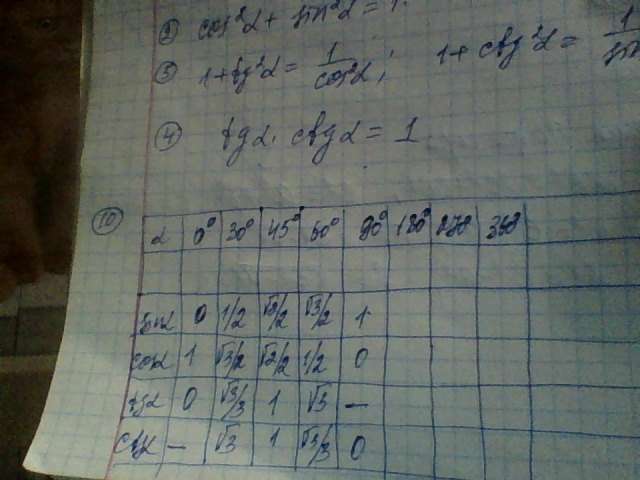 ② cos²α + sin²α = 1.
③ 1 + tg²α = 1/cos²α; 1 + ctg²α = 1/sin
④ tgα · ctgα = 1
⑩
α 0° 30° 45° 60° 90° 180° 270° 360°
sinα 0 1/2 √2/2 √3/2 1
cosα 1 √3/2 √2/2 1/2 0
tgα 0 √3/3 1 √3 —
ctgα — √3 1 √3/3 0